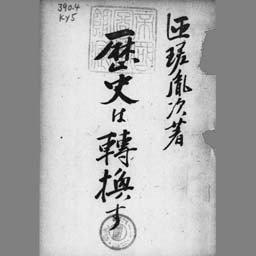 390.4
Ky5
匝瑳胤次著
歴史は轉換す